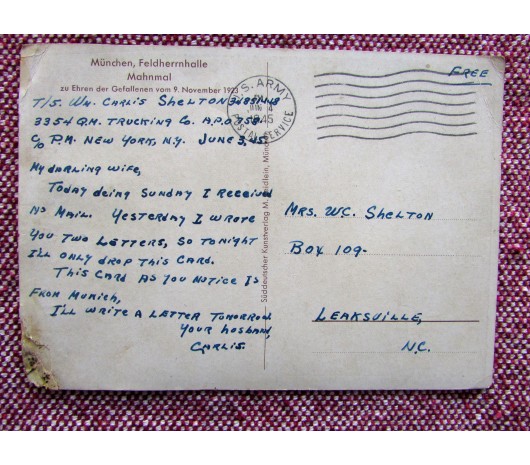 München, Feldherrnhalle
Mahnmal
zu Ehren der Gefallenen vom 9. November 1923
T/5. Wm. Carlis Shelton
3354 Q.M. Trucking Co. A.P.O. 758
c/o P.M. New York, N.Y. June 3, 45.
My darling wife,
Today being Sunday I received
no mail. Yesterday I wrote
you two letters, so tonight
I'll only drop this card.
This card as you notice is
from Munich,
I'll write a letter tomorrow
Your husband,
Carlis.
Süddeutscher Kunstverlag M.
U.S. ARMY
JUN 4
1945
POSTAL SERVICE
Free
Mrs. W.C. Shelton
Box 109-
Leaksville,
N.C.